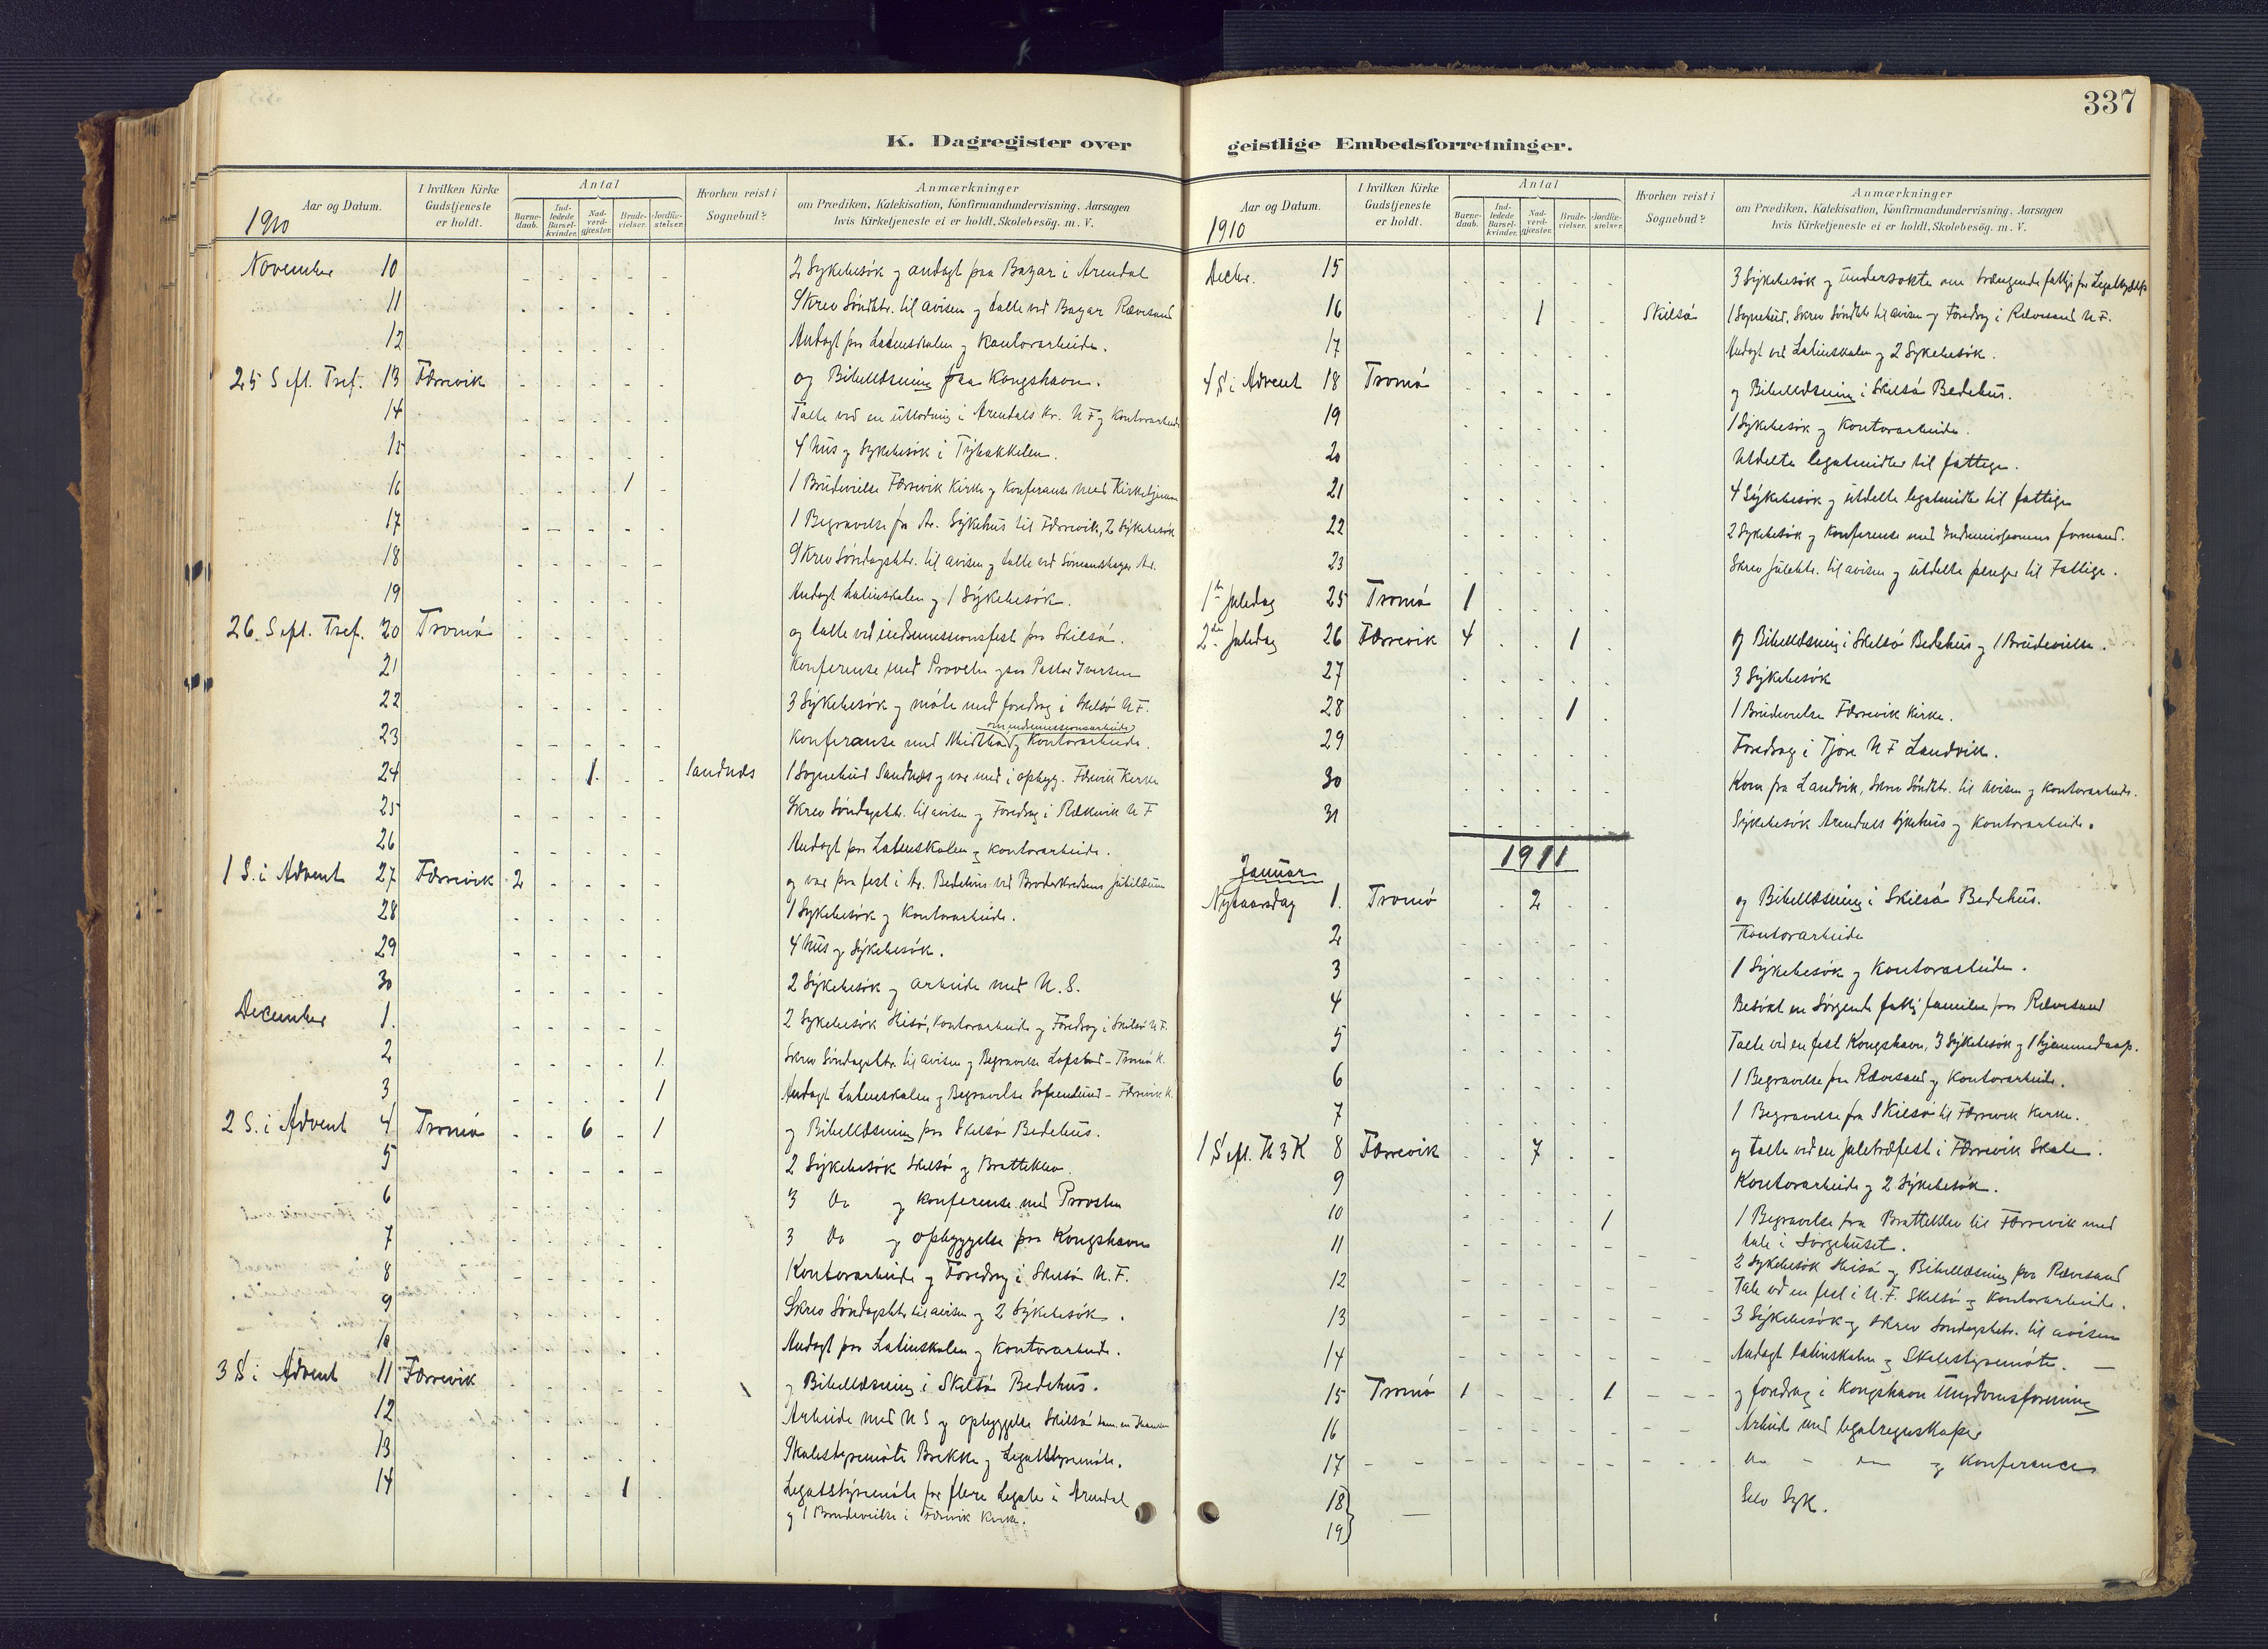 337
K. Dagregister over geistlige Embedsforretninger.
Aar og Datum. I hvilken Kirke Gudstjeneste er holdt. Antal Barnedaab. Indledede Barselkvinder. Nadverdgjæster. Brudevielser. Jordfæstelser. Hvorhen reist i Sognebud? Anmærkninger om Prædiken, Katekisation, Konfirmandundervisning, Aarsagen hvis Kirketjeneste ei er holdt, Skolebesög. m. V.
1910
November 10 2 Sykebesøk og andagt paa Bazar i Arendal
11 Skrev Søndbtr. til avisen og talte ved Bazar Rævesand
12 Andagt paa Latinskolen og Kontorarbeide.
25 S eft. Tref. 13 Færrevik og Bibellæsning paa Kongshavn.
14 Talte ved en utlodning i Arendals Kr. U F og Kontorarbeide
15 4 hus og Sykebesøk i Tybakkelen.
16 1 1 Brudevielse Færrevik Kirke og Konferanse med Kirketjener
17 1 Begravelse fra Ar. Sykehus til Færrevik, 2 Sykebesøk
18 Skrev Søndagsbtr. til avisen og talte ved Sømansbazar Ar.
19 Andagt Latinskolen og 1 Sykebesøk.
26. S eft. Tref. 20 Tromø og talte ved indremissionsfest paa Skilsø.
21 Konferense med Provsten og Pastor Iversen
22 3 Sykebesøk og møte med foredrag i Skilsø U F.
23 Konferanse med om indremissionsarbeide og Kontorarbeide.
24 1. Sandnæs 1 Sognebud Sandnæs og var med i opbyg. Færrevik Kirke
25 Skrev Søndagsbtr. til avisen og Foredrag i U F
26 Andagt paa Latinskolen og kontorarbeide.
1 S. i Advent 27 Færrevik 2 og var paa fest i Ar. Bedehus ved Broderkredsens Jubilæum
28 1 Sykebesøk og Kontorarbeide.
29 4 hus og Sykebesøk.
30 2 Sykebesøk og arbeide med U. S.
December 1. 2 Sykebesøk Hisø, Kontorarbeide og Foredrag i Skilsø U F.
2 1. Skrev Søndagsbtr. til avisen og Begravelse Lofstad - Tromø K.
3 1 Andagt Latinskolen og Begravelse - Færrevik K.
2 S. i Advent 4 Tromø 6 1 og Bibellæsning paa Skilsø Bedehus.
5 2 Sykebesøk Skilsø og Bratteklev.
6 3 Do og konferense med Provsten
7 3 Do og opbyggelse paa Kongshavn
8 Kontorarbeide og Foredrag i Skilsø U. F.
9 Skrev Søndagsbtr til avisen og 2 Sykebesøk.
10 Andagt paa Latinskolen og Kontorarbeide.
3 S. i Advent 11 Færrevik og Bibellæsning i Skilsø Bedehus.
12 Arbeide med U S og opbyggelse Skilsø
13 Skolestyremøte Brekke og Legatstyremøte.
14 1 Legatstyremøte for flere Legater i Arendal
og 1 Brudevielse i Færrevik Kirke.
Aar og Datum. I hvilken Kirke Gudstjeneste er holdt. Antal Barnedaab. Indledede Barselkvinder. Nadverdgjæster. Brudevielser. Jordfæstelser. Hvorhen reist i Sognebud? Anmærkninger om Prædiken, Katekisation, Konfirmandundervisning, Aarsagen hvis Kirketjeneste ei er holdt, Skolebesög. m. V.
1910
Decbr. 15 3 Sykebesøk og undersøkte om trængende fattige for
16 1 Skilsø 1 Sognebud, Skrev Søndbtr til avisen og Foredrag i Rævesand U F.
17 Andagt ved Latinskolen og 2 Sykebesøk.
4 S. i Advent 18 Tromø og Bibellæsning i Skilsø Bedehus.
19 1 Sykebesøk og Kontorarbeide.
20 Utdelte legatmidler til fattige.
21 4 Sykebesøk og utdelte legatmidler til fattige
22 2 Sykebesøk og Konferense med Indremissionens formand.
23 Skrev Julebtr. til avisen og utdelte penger til Fattige.
1ste Juledag 25 Tromø 1
2den Juledag 26 Færrevik 4 1 og Bibellæsning i Skilsø Bedehus og 1 Brudevielse.
27 3 Sykebesøk
28 1 1 Brudevielse Færrevik Kirke.
29 Foredrag i Tjore U F Landvik.
30 Kom fra Landvik, Skrev Søndbtr. til avisen og Kontorarbeide.
31 Sykebesøk Arendals Sykehus og Kontorarbeide.
1911
Januar
Nytaarsdag 1. Tromø 2 og Bibellæsning i Skilsø Bedehus.
2 Kontorarbeide
3 1 Sykebesøk og Kontorarbeide.
4 Besøkt en Sørgende fattig familie paa Rævesand
5 Talte ved en fest Kongshavn, 3 Sykebesøk og 1 hjemmedaap.
6 1 Begravelse paa Rævesand og Kontorarbeide.
7 1 Begravelse fra Skilsø til Færrevik Kirke.
1 S eft. H 3 K 8 Færrevik 7 og talte ved en juletræfest i Færrevik Skole.
9 Kontorarbeide og 2 Sykebesøk.
10 1 1 Begravelse fra Bratteklev til Færrevik med
tale i Sørgehuset.
11 2 Sykebesøk Hisø og Bibellæsning paa Rævesand
12 Tale ved en fest i U. F. Skilsø og Kontorarbeide.
13 3 Sykebesøk og Skrev Søndagsbtr. til avisen
14 Andagt Latinskolen og Skolestyremøte. —
15 Tromø 1 1 og foredrag i Kongshavn Ungdomsforening
16 Arbeide med legatregnskaper
17 Do - do og Konferancer
18} — Selv Syk.
19}